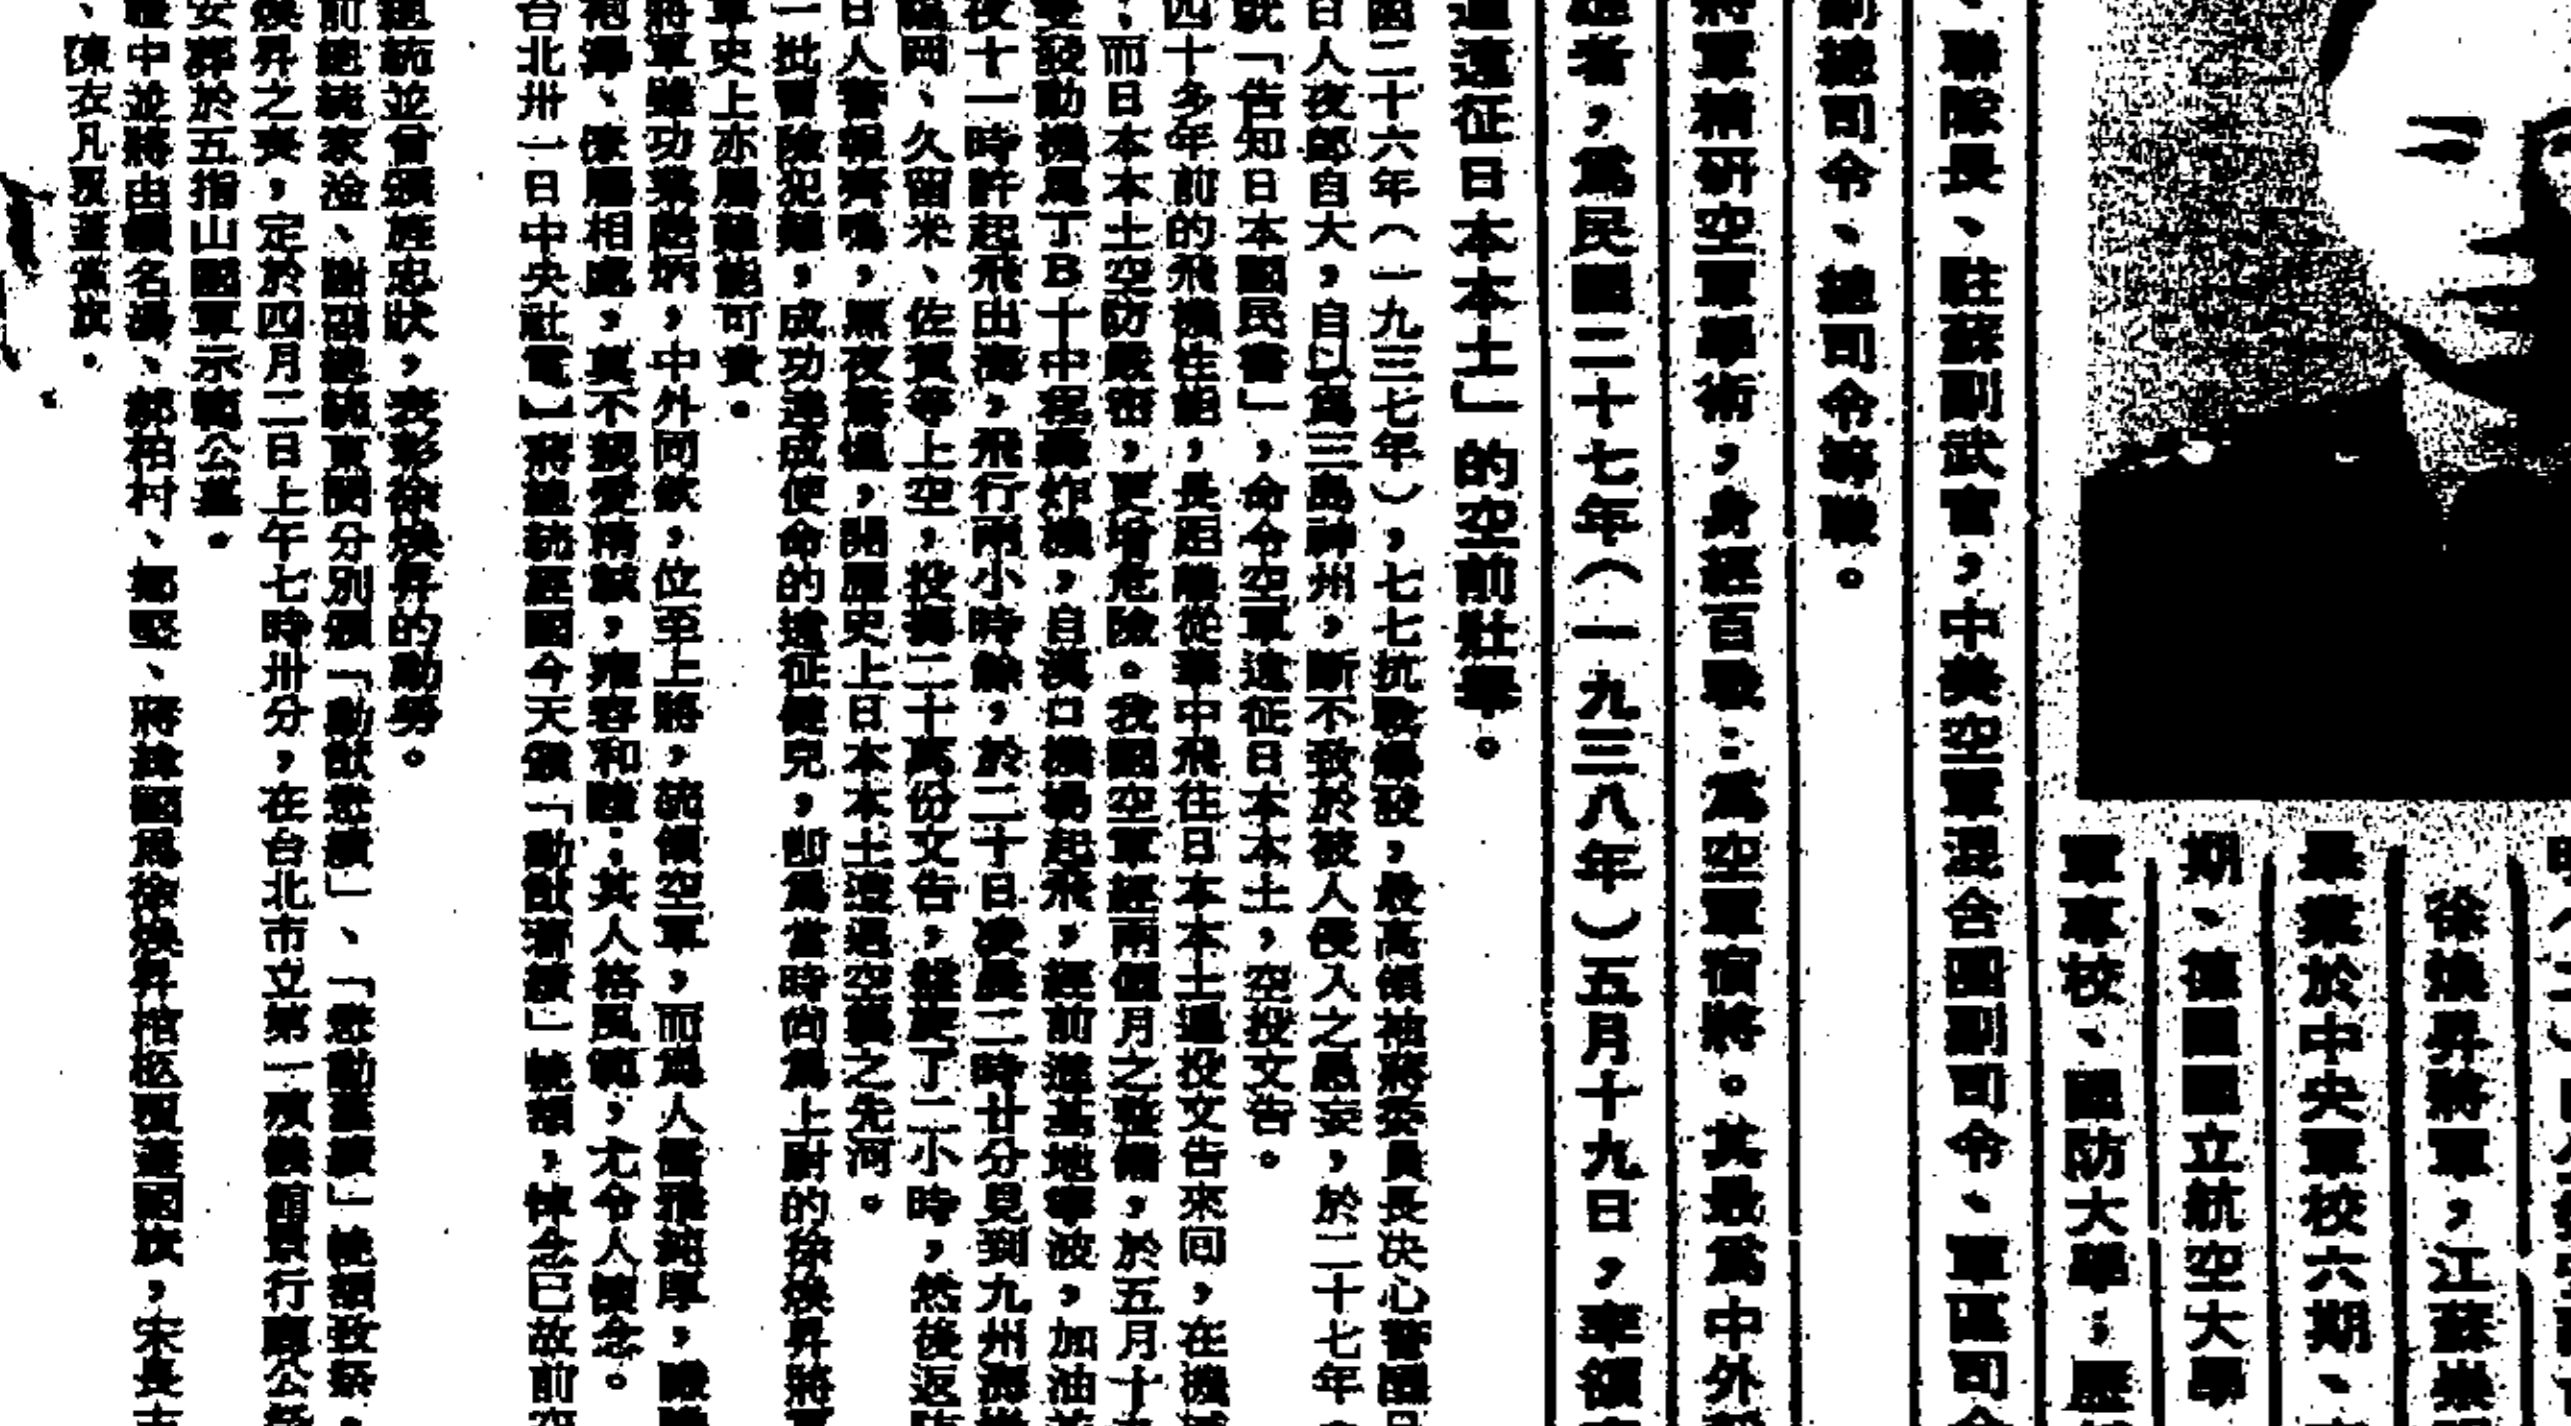 明
徐煥昇將軍，江蘇崇
畢業於中央軍校六期、
期、德國國立航空大學
軍專校、國防大學；歷
、聯隊長、駐蘇副武官，中美空軍混合團副司令、軍區司令
副總司令、總司令等職。
將軍精研空軍學術，身經百戰；為空軍宿將。其最為中外
者，為民國二十七年（一九三八年）五月十九日，率領
遠征日本本土」的空前壯舉。
國二十六年（一九三七年），七七抗戰爆發，最高領袖蔣委員長決心警
日人夜郎自大，自以為三島神州，斷不致於被人侵入之愚妄，於二十七年
就「告知日本國民書」，命令空軍遠征日本本土，空投文告。
四十多年前的飛機性能，長距離從華中飛往日本本土遍投文告來回，在機
，而日本本土空防嚴密，更增危險。我國空軍經兩個月之整備，於五月十
雙發動機馬丁B十中程轟炸機，自漢口機場起飛，經前進基地寧波，加油
夜十一時許起飛出海，飛行兩小時餘，於二十日凌晨二時廿分見到九州海
岡、久留米、佐賀等上空，投擲二十萬份文告，盤旋了二小時，然後返
日人警報齊鳴，黑夜驚惶，開歷史上日本本土遭遇空襲之先河。
一批冒險犯難，成功達成使命的遠征健兒，即為當時尚為上尉的徐煥昇將
軍史上亦屬難能可貴。
將軍雖功業彪炳，中外同欽，位至上將，統領空軍，而為人儒雅純厚，
袍澤、僚屬相處，莫不親愛精誠，雍容和睦；其人格風範，尤令人懷念。
台北卅一日中央社電】蔣總統經國今天頒「勳猷濟績」輓額，悼念已故前空
總統並曾頒旌忠狀，表彰徐煥昇的勳勞。
前總統家淦、謝副總統東閔分別頒「勳猷懋績」、「懋勳藎績」輓額致祭。
煥昇之喪，定於四月二日上午七時卅分，在台北市立第一殯儀館舉行
安葬於五指山國軍示範公墓。
禮中並將由賴名湯、郝柏村、鄒堅、蔣緯國為徐煥昇棺柩覆蓋國旗，宋長志
、陳衣凡覆蓋黨旗。